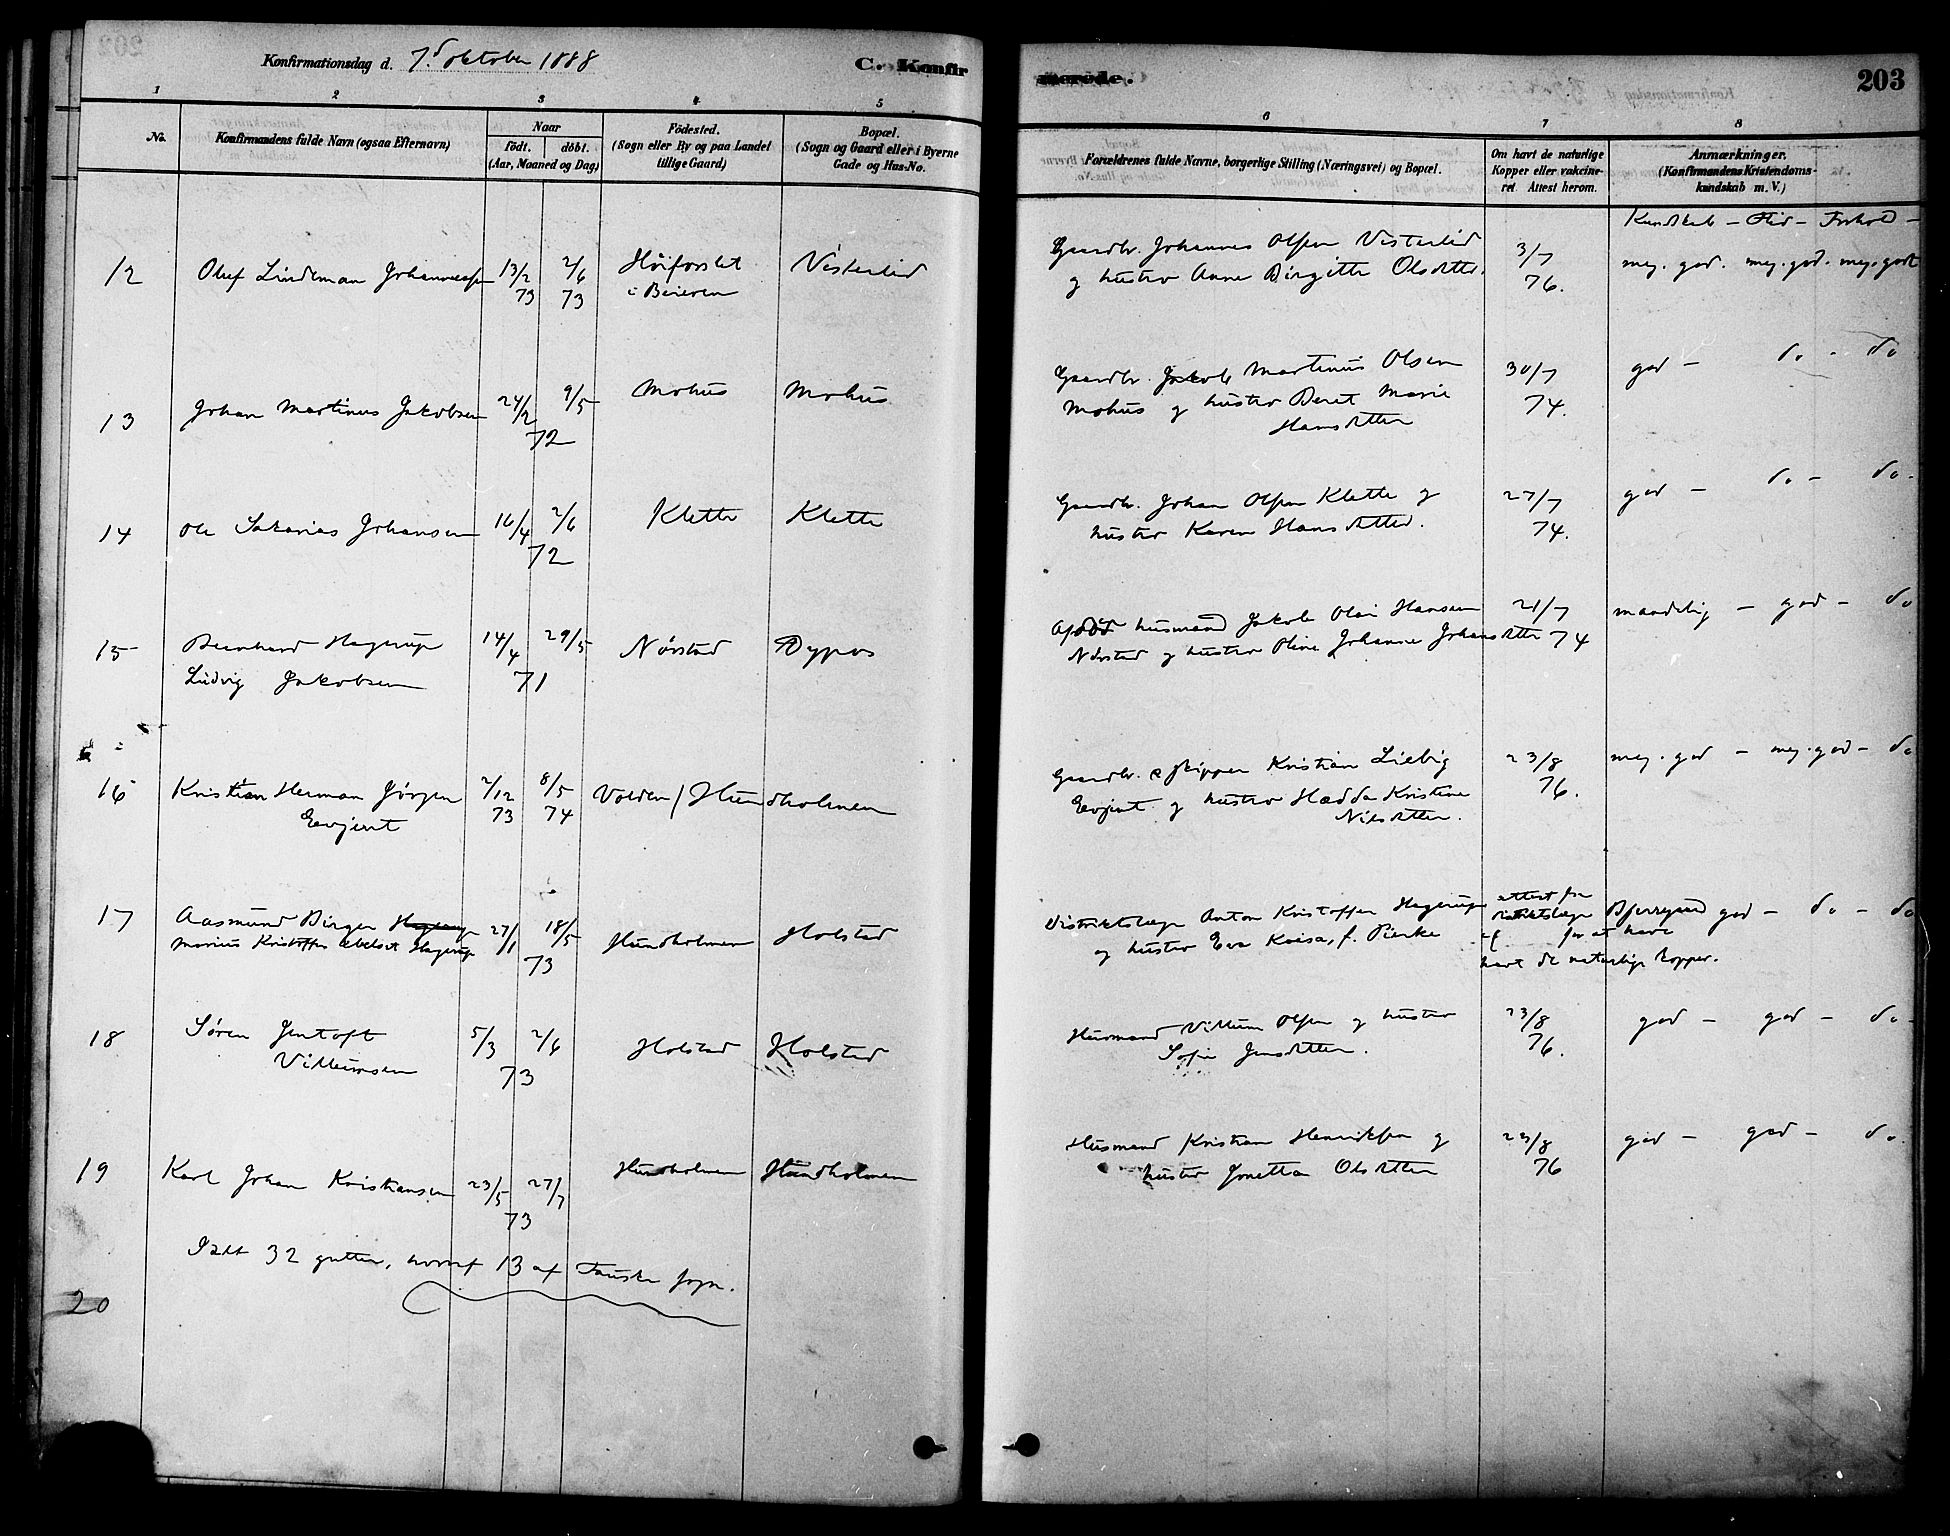 Konfirmationsdag d. 7.d oktober 1888
C. Konfir
merede.
203
1 2 3 4 5 6 7 8
No.
Konfirmandens fulde Navn (ogsaa Efternavn)
Naar
födt. döbt.
(Aar, Maaned og Dag)
Födested.
(Sogn eller By og paa Landet
tillige Gaard)
Bopæl.
(Sogn og Gaard eller i Byerne
Gade og Hus-No.
Forældrenes fulde Navne, borgerlige Stilling (Næringsvei) og Bopæl.
Om havt de naturlige
Kopper eller vakcine-
ret. Attest herom.
Anmærkninger.
(Konfirmandens Kristendoms-
kundskab m. V.)
Kundskab – Flid – Forhold –
12 Oluf Lindeman Johannessen 13/2 73 2/6 73 Höiforslet
i Beieren
Vesterlid
Gaardbr. Johannes Olsen Vesterlid
og hustro Anne Birgitte Olsdtter.
3/7
76.
meg. god. meg. god. meg. godt
13 Johan Martinus Jakobsen 24/2 9/5
72
Mohus Mohus
Gaardbr. Jakob Martinus Olsen
Mohus og hustro Beret Marie
Hansdtter
30/7
74.
god – do - do
14 Ole Sakarias Johansen 16/4 2/6
72
Klette Klette
Gaardbr. Johan Olsen Klette og
hustro Karen Hansdtter.
27/7
74.
god – do – do.
15 Bernhard Hagerup
Ludvig Jakobsen
14/4 29/5
71
Nörstad Dypos
Afdöd husmand Jakob Olai Hansen
Nörstad og hustro Oline Johanne Johansdtter
21/7
74
maadelig – god – do
16 Kristian Herman Jörgen
Eevjent
2/12 73 8/5 74
Volden / Hundholmen
Gaardbr. & skipper Kristian Liebig
Eevjent og hustro Hædda Kristine
Nilsdtter.
23/8
76.
meg. god – meg. god – do
17 Aasmund Birger Hagerup
Marius Kristoffer Abelset Hagerup
27/1 18/5
73
Hundholmen Holstad
Distriktslæge Anton Kristoffer Hagerup
og hustro Eva Kaisa, f. Pierke
attest fra
distriktslæge Bjerregaard
for at have
havt de naturlige kopper.
god – do – do
18 Sören Jentoft
Villumsen
5/3 2/6
73
Holstad Holstad
Husmand Villum Olsen og hustro
Sofie Jensdtter.
23/8
76.
god – god – do -
19 Karl Johan Kristiansen 23/5 27/7
73
Hundholmen Hundholmen
Husmand Kristian Henriksen og
hustro Jonetta Olsdtter
23/8
76
god – god – do.
Idt 32 gutter, hvoraf 13 af Fauske sogn.
20